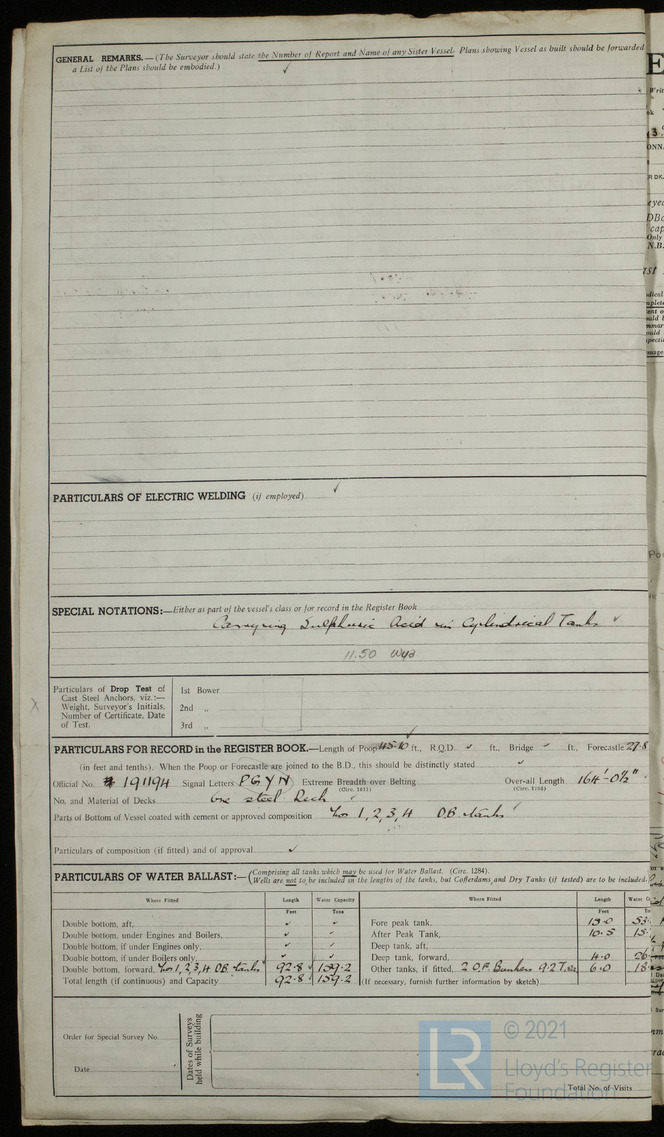 GENERAL REMARKS.—(The Surveyor should state the Number of Report and Name of any Sister Vessel. Plans showing Vessel as built should be forwarded
a List of the Plans should be embodied.)
PARTICULARS OF ELECTRIC WELDING (if employed)
SPECIAL NOTATIONS:—Either as part of the vessel's class or for record in the Register Book
Carrying Sulphuric Acid in Cylindrical Tanks
11.50 Wya
Particulars of Drop Test of
Cast Steel Anchors, viz.:—
Weight, Surveyor's Initials,
Number of Certificate, Date
of Test.
1st Bower
2nd „
3rd „
PARTICULARS FOR RECORD in the REGISTER BOOK.—Length of Poop 45.10 ft., R.Q.D. ✓ ft., Bridge ✓ ft., Forecastle 27.8
(in feet and tenths). When the Poop or Forecastle are joined to the B.D., this should be distinctly stated ✓
Official No. 191194 Signal Letters PGYN Extreme Breadth over Belting Over-all Length 164'-0½"
(Circ. 1611) (Circ. 1703)
No. and Material of Decks One steel Deck
Parts of Bottom of Vessel coated with cement or approved composition Nos 1, 2, 3, 4 D.B. tanks
Particulars of composition (if fitted) and of approval ✓
PARTICULARS OF WATER BALLAST:—(Comprising all tanks which may be used for Water Ballast. (Circ. 1284).
(Wells are not to be included in the lengths of the tanks, but Cofferdams and Dry Tanks (if tested) are to be included.
Where Fitted Length Water Capacity Where Fitted Length
Feet Tons Feet
Double bottom, aft, ✓ ✓ Fore peak tank, 13.0 53.
Double bottom, under Engines and Boilers, ✓ ✓ After Peak Tank, 10.5 15.
Double bottom, if under Engines only, ✓ ✓ Deep tank, aft,
Double bottom, if under Boilers only, ✓ ✓ Deep tank, forward, 4.0 26
Double bottom, forward, Nos 1, 2, 3, 4 DB tanks 92.8 159.2 Other tanks, if fitted, 2 O.F. Bunkers 9.2 Tons 6.0 18
Total length (if continuous) and Capacity 92.8 159.2 (If necessary, furnish further information by sketch)
Order for Special Survey No.
Date
Dates of Surveys
held while building
Total No. of Visits
LR
© 2021
Lloyd's Register
Foundation